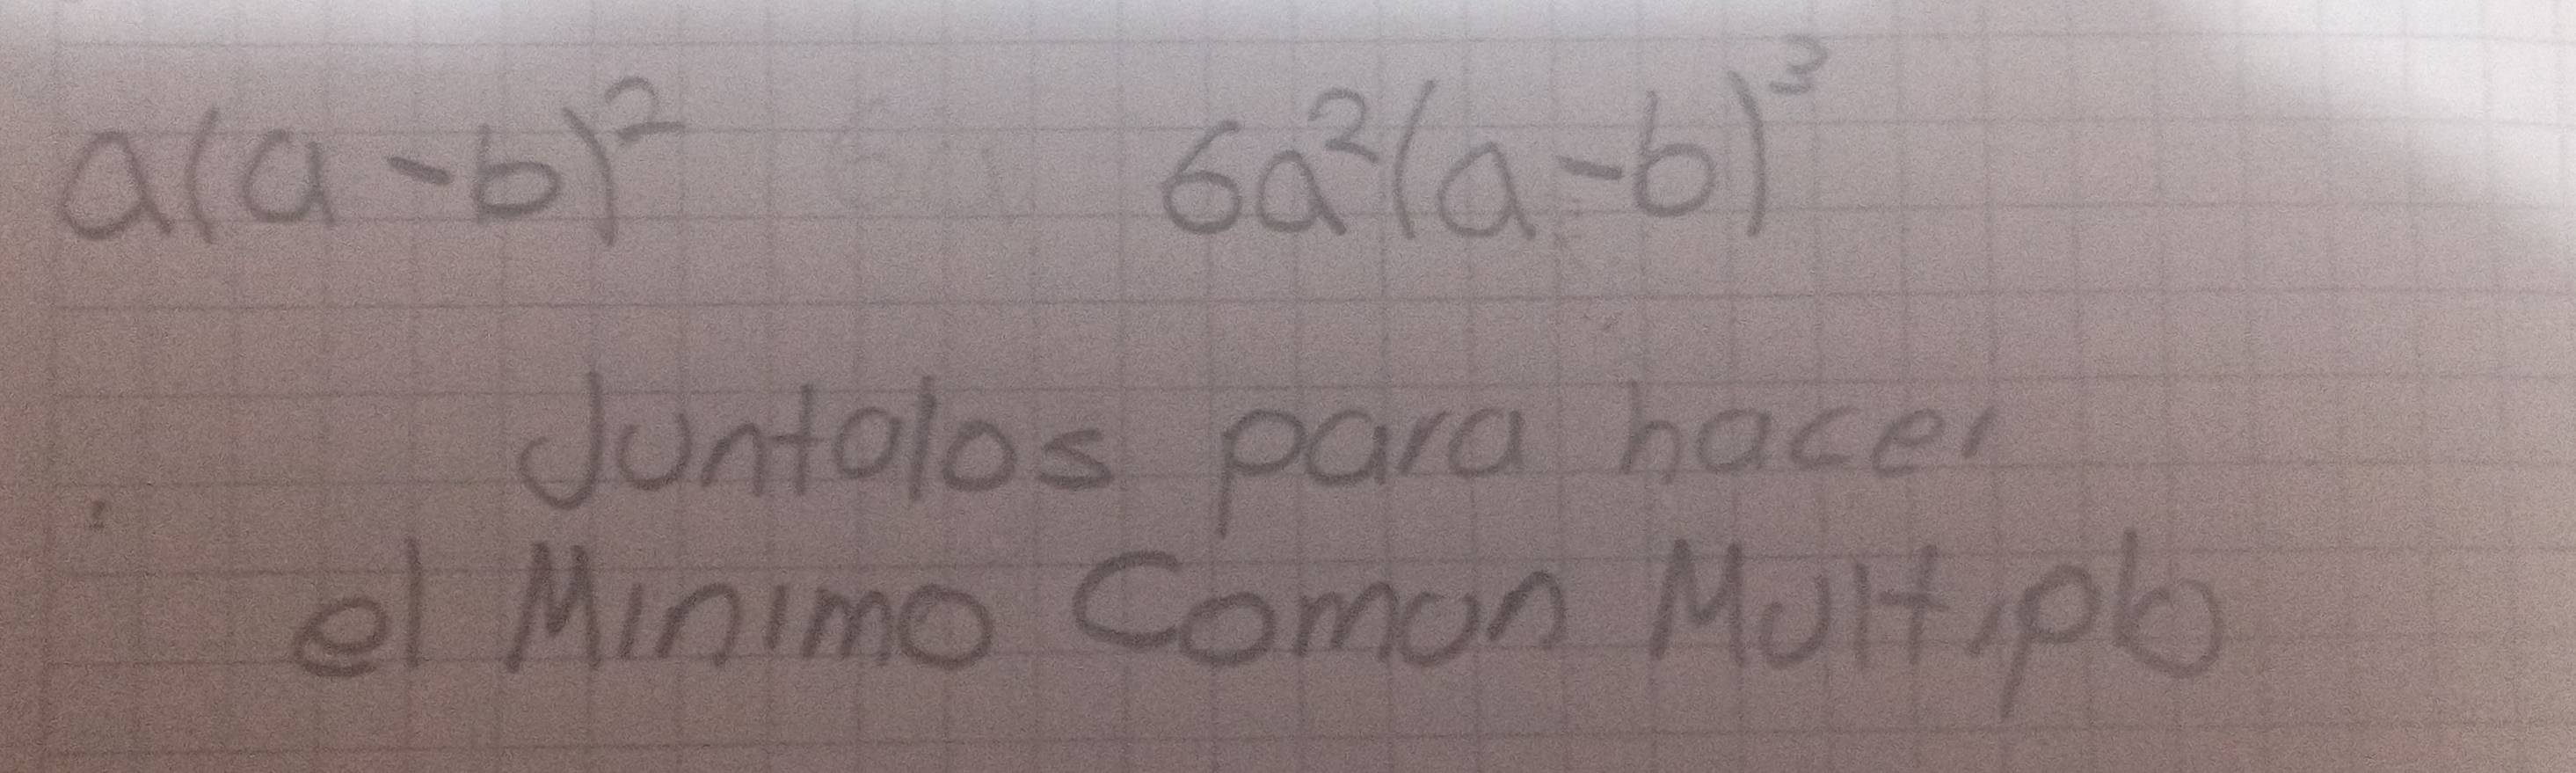 a(a-b)² 6a²(a-b)³
Juntalos para hacer
el Minimo Comun Multiplo